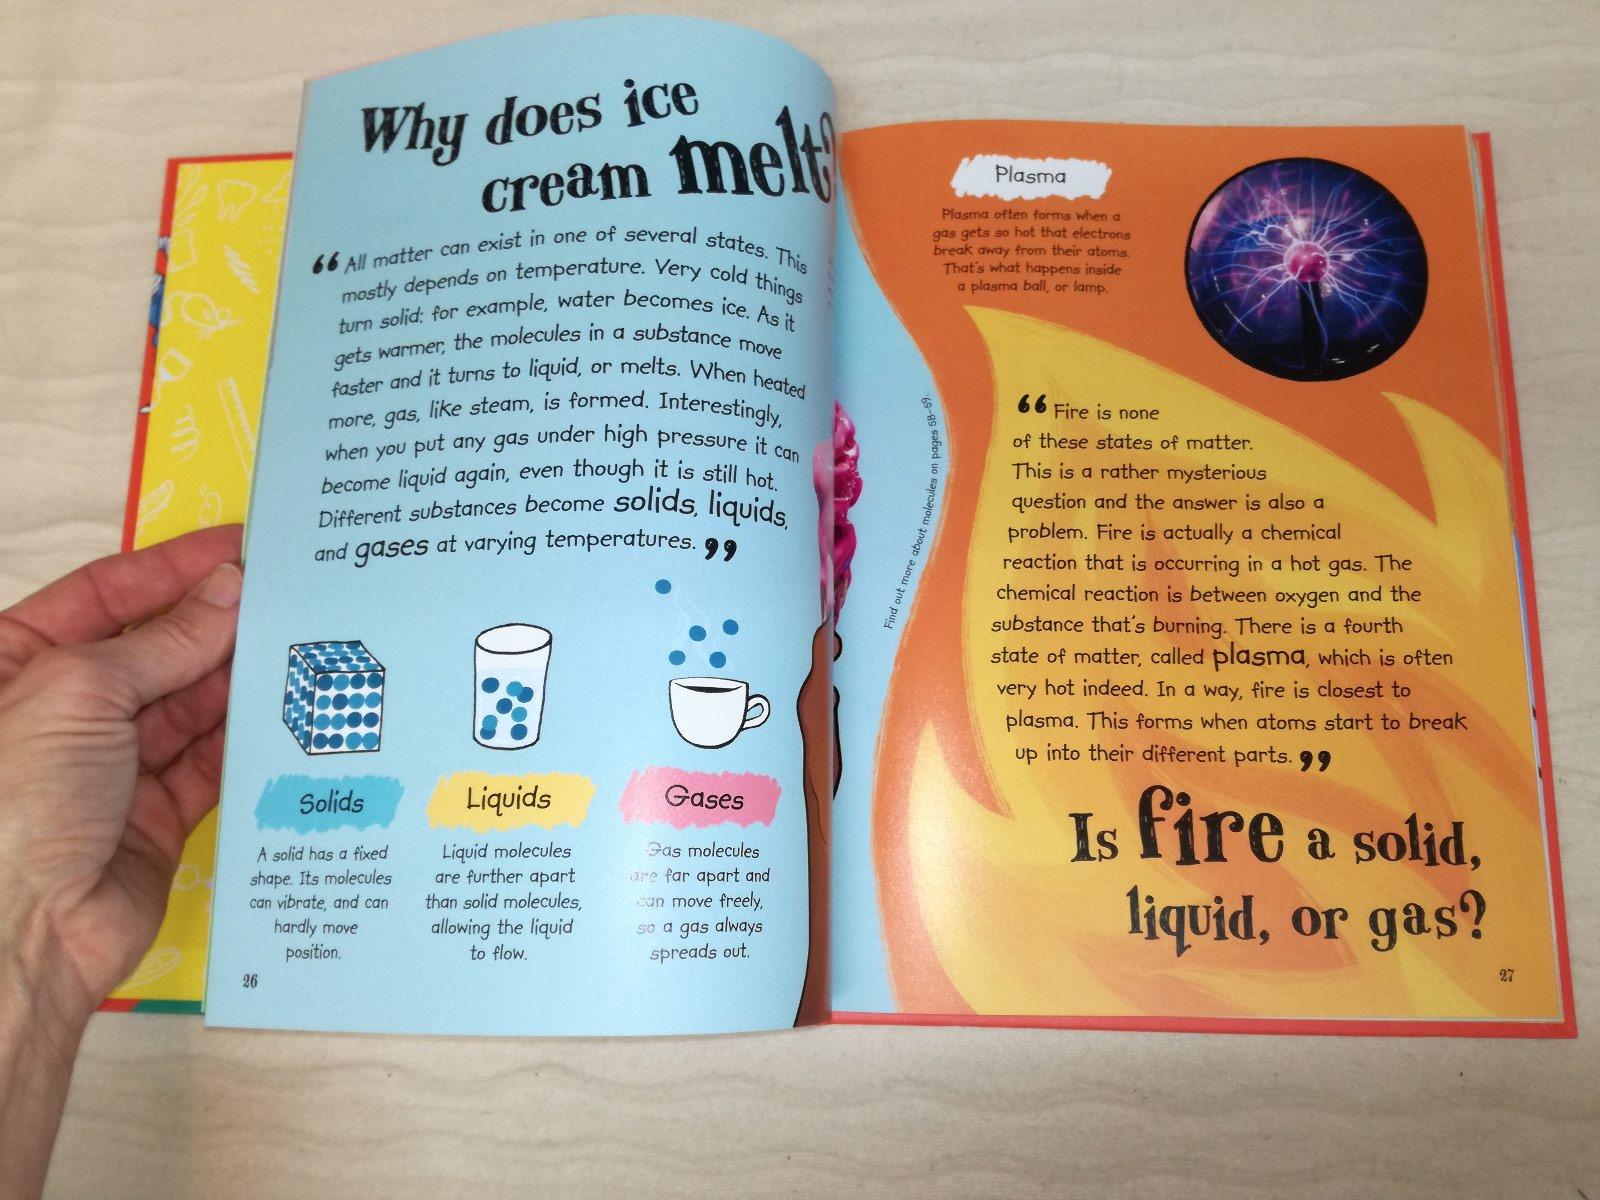 Why does ice
cream melt?
“All matter can exist in one of several states. This
mostly depends on temperature. Very cold things
turn solid: for example, water becomes ice. As it
gets warmer, the molecules in a substance move
faster and it turns to liquid, or melts. When heated
more, gas, like steam, is formed. Interestingly,
when you put any gas under high pressure it can
become liquid again, even though it is still hot.
Different substances become solids, liquids,
and gases at varying temperatures.”
Solids
A solid has a fixed
shape. Its molecules
can vibrate, and can
hardly move
position.
Liquids
Liquid molecules
are further apart
than solid molecules,
allowing the liquid
to flow.
Gases
Gas molecules
are far apart and
can move freely,
so a gas always
spreads out.
26
Find out more about molecules on pages 58–59.
Plasma
Plasma often forms when a
gas gets so hot that electrons
break away from their atoms.
That's what happens inside
a plasma ball, or lamp.
“Fire is none
of these states of matter.
This is a rather mysterious
question and the answer is also a
problem. Fire is actually a chemical
reaction that is occurring in a hot gas. The
chemical reaction is between oxygen and the
substance that's burning. There is a fourth
state of matter, called plasma, which is often
very hot indeed. In a way, fire is closest to
plasma. This forms when atoms start to break
up into their different parts.”
Is fire a solid,
liquid, or gas?
27